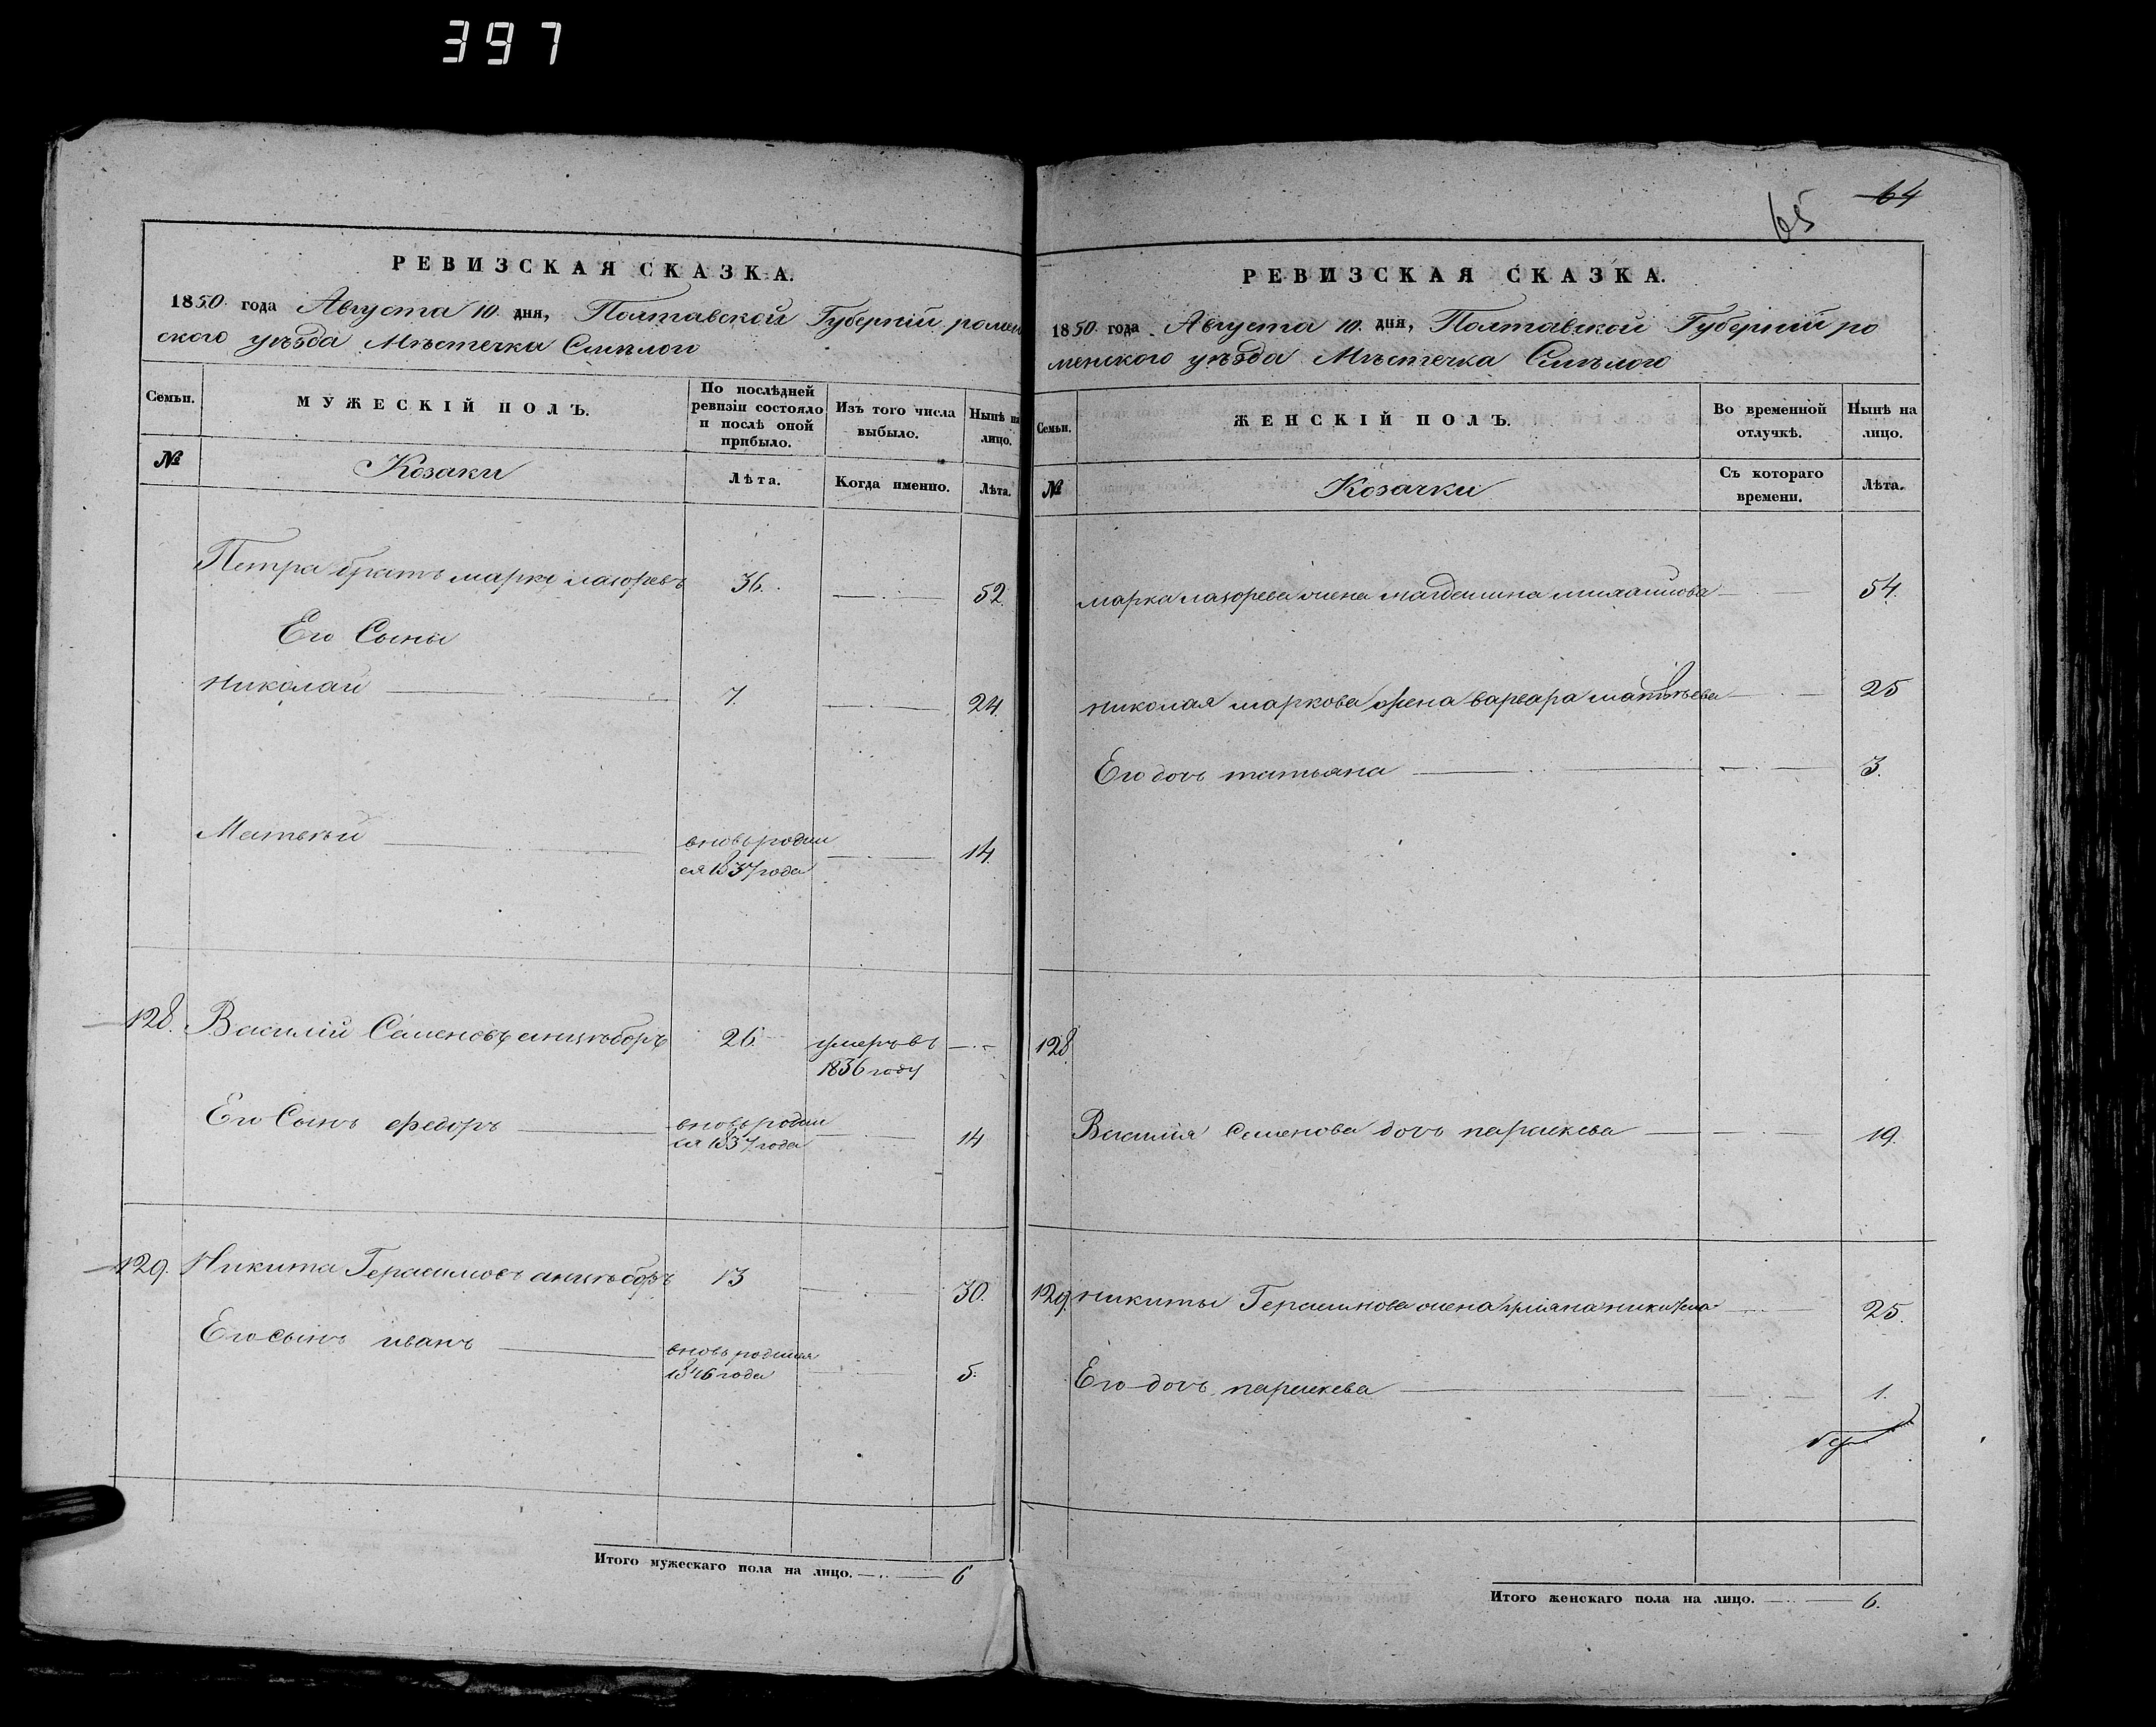 397
РЕВИЗСКАЯ СКАЗКА.
1850 года Августа 10 дня, Полтавской Губерніи ромен
ского уѣзда Мѣстечка Смѣлого
Семьи.
МУЖЕСКІЙ ПОЛЪ.
По послѣдней ревизіи состояло и послѣ оной прибыло.
Изъ того числа выбыло.
Нынѣ на лицо.
№
Козаки
Лѣта.
Когда именно.
Лѣта.
Петра братъ марко лазоревъ 36. 52.
Его Сыны
Николай 7. 24.
Матвѣй вновь родил 14.
ся 1837 года
128. Василій Семеновъ 26. умеръ въ
1836 году
Его Сынъ федоръ вновь родил 14
ся 1837 года
129. Никита Герасимовъ 13 30.
Его сынъ иванъ вновь родился 5.
1846 года
Итого мужескаго пола на лицо. 6
65 64
РЕВИЗСКАЯ СКАЗКА.
1850 года Августа 10. дня, Полтавской Губерніи ро
менского уѣзда Мѣстечка Смѣлого
Семьи.
ЖЕНСКІЙ ПОЛЪ.
Во временной отлучкѣ.
Нынѣ на лицо.
№
Козачки
Съ котораго времени.
Лѣта.
марка лазорева жена магдалина михайлова 54.
николая маркова жена варвара матвѣева 25
Его дочь татьяна 3.
128
Василія Семенова дочь параскева 19.
129. никиты Герасимова жена никитина 25.
Его дочь параскева 1.
Итого женскаго пола на лицо. 6.